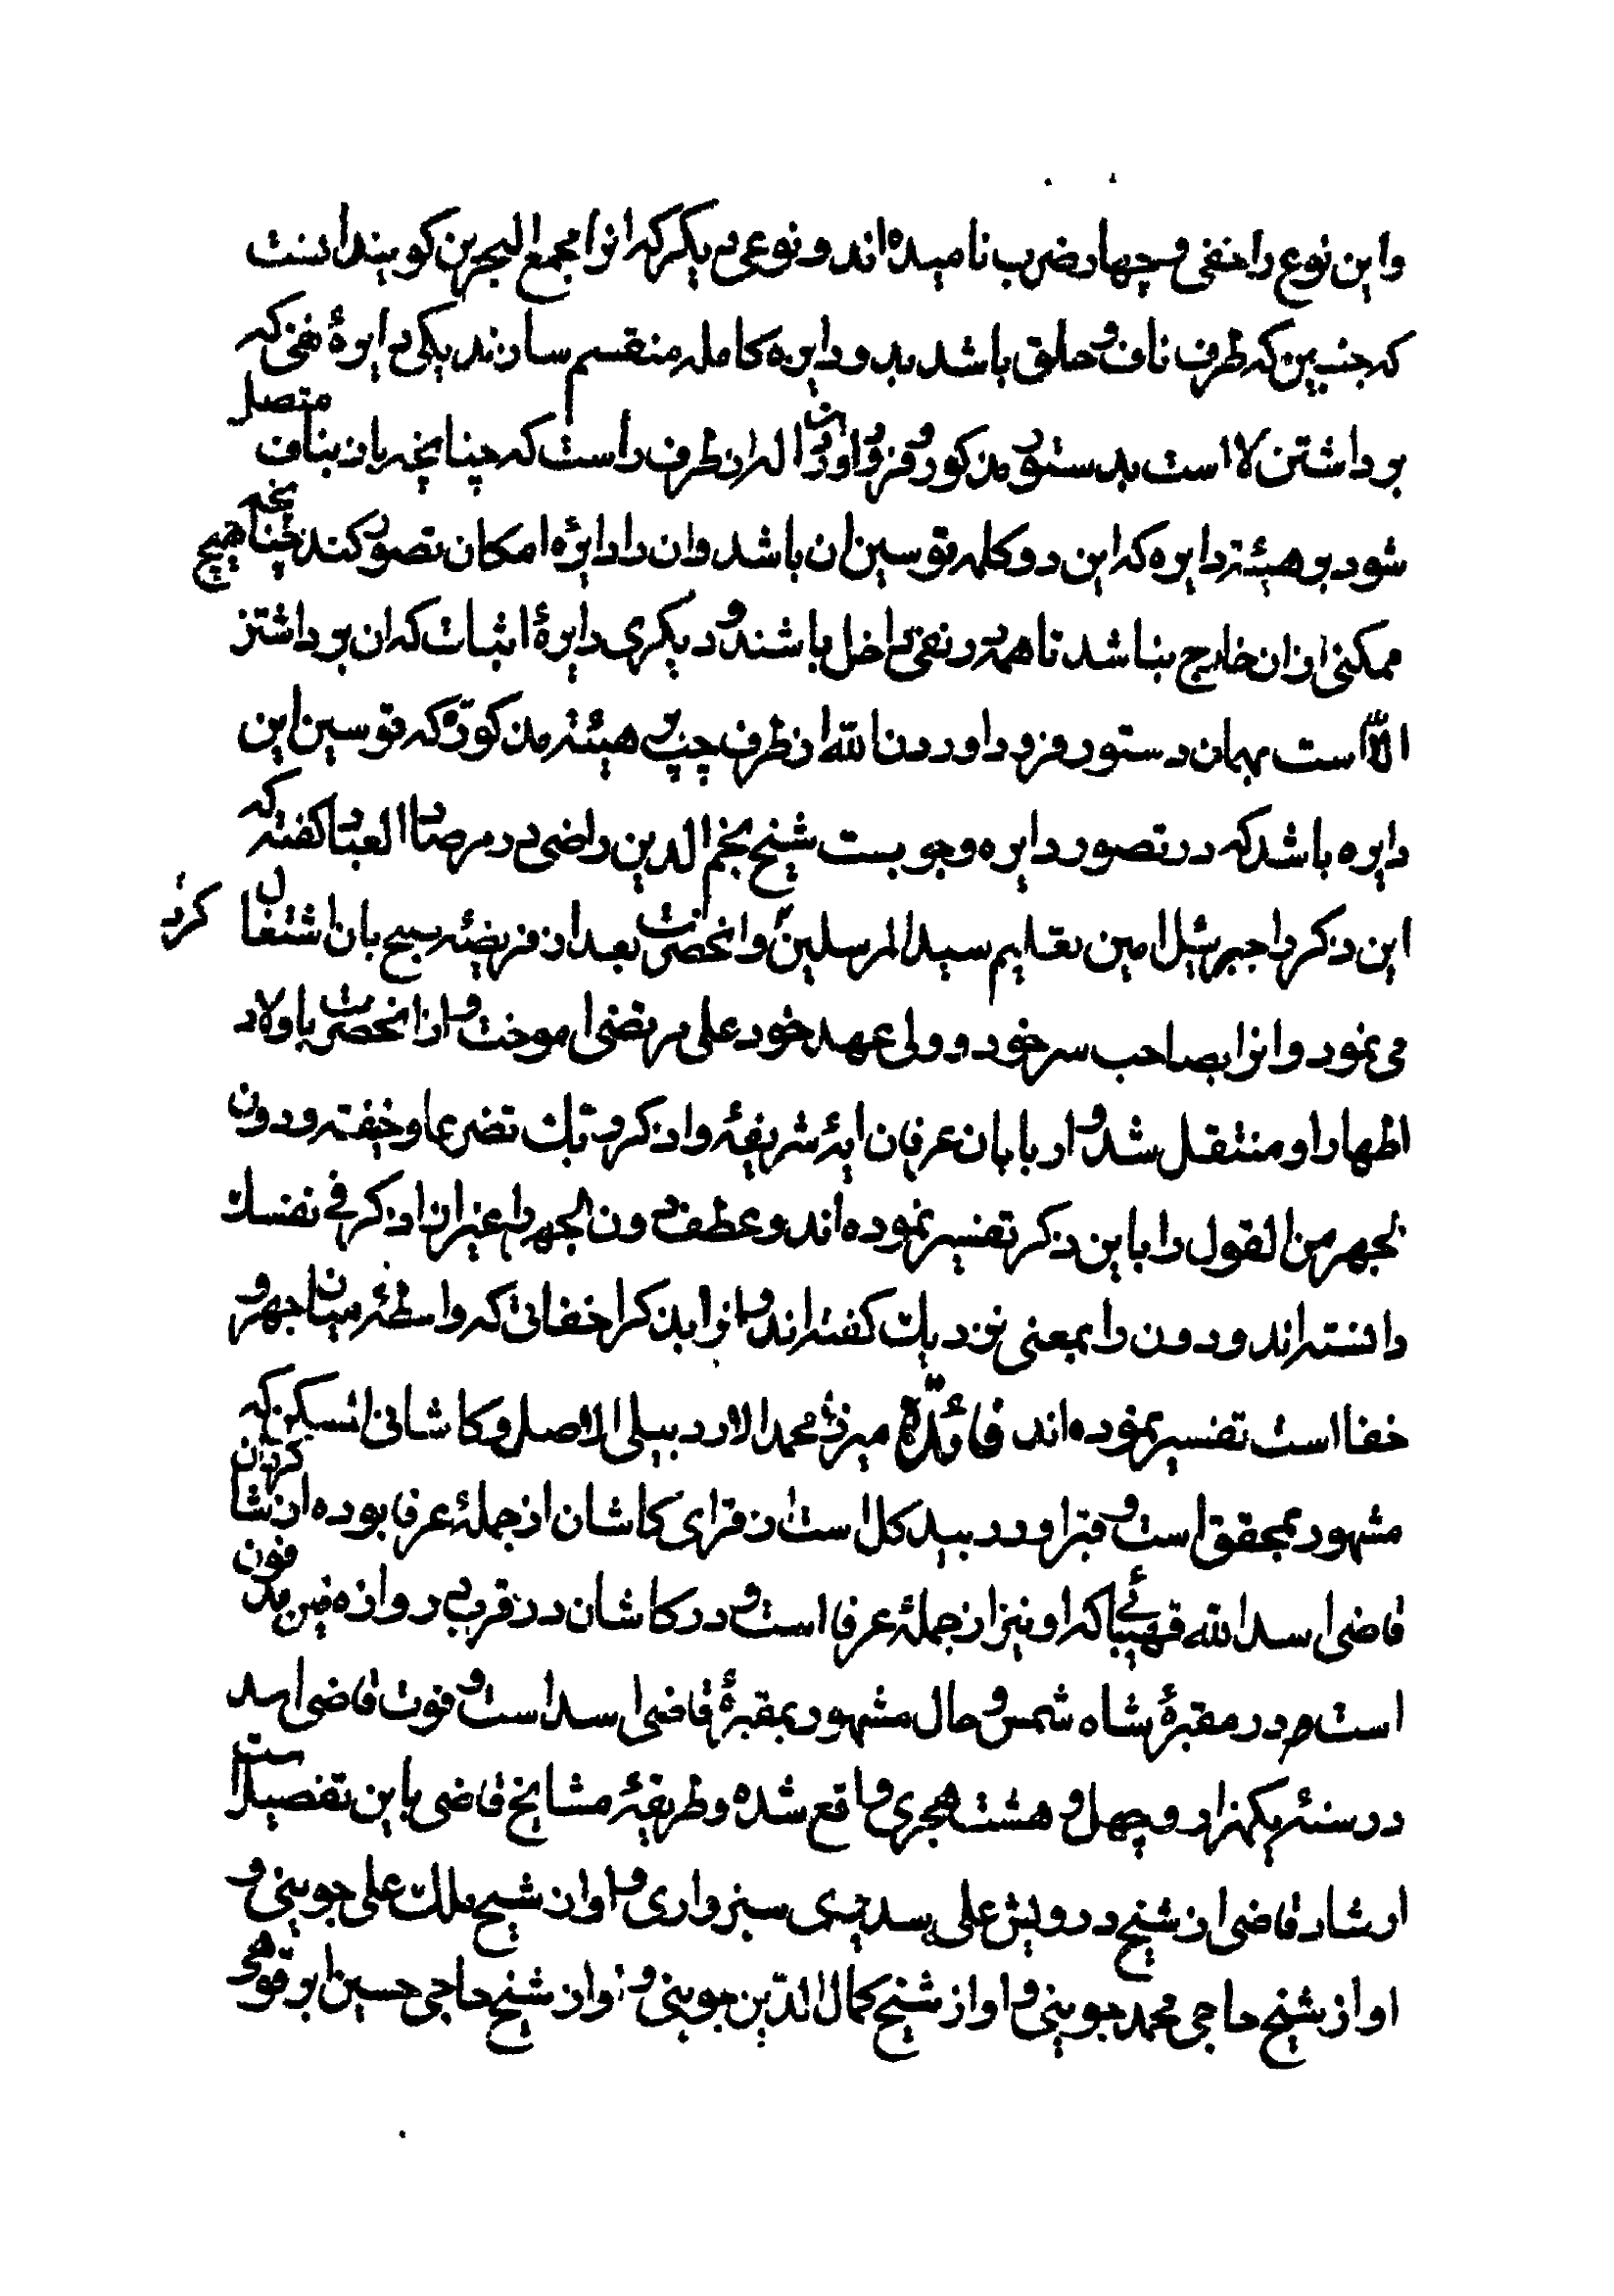 واین نوع را خفی و چهار ضرب نامیده اند و نوعی دیگر که انرا مجمع البحرین کویند انست
که جنبین که طرف ناف و حلق باشد بدو دایره کامله منقسم سازند یکی دایرهٔ نفی که
برداشتن لا است بدستور مذکور و فرود اوردن اله از طرف راست که چنانچه باز بناف متصل
شود بر هیئة دایره که این دو کلمه قوسین ان باشد وان را دایرهٔ امکان تصور کند چنانچه هیچ
ممکنی از ان خارج نباشد تا همه در نفی داخل باشند و دیکری دایرهٔ اثبات که ان برداشتن
الّا است بهمان دستور و فرود اوردن الله از طرف چپ بر هیئة مذکوره که قوسین این
دایره باشد که در تصور دایره وجوبست شیخ نجم الدین راضی در مرصاد العباد کفته که
این ذکر را جبرئیل امین تعلیم سید المرسلین کرد وانحضرت بعد از فریضهٔ صبح بان اشتغال
می نمود وانرا بصاحب سر خود و ولی عهد خود علی مرتضی اموخت و از انحضرت باولاد
اطهار او منتقل شد و اربابان عرفان ایهٔ شریفهٔ واذکر ربک تضرعا وخیفة ودون
الجهر من القول را باین ذکر تفسیر نموده اند و عطف دون الجهر را غیر از اذکر فی نفسک
دانسته اند ودون را بمعنی نزدیک کفته اند و انرا بذکر اخفاتی که واسطهٔ میان جهر و
خفا است تفسیر نموده اند فائدة میرزا محمد الاردبیلی الاصل و کاشانی المسکن که
مشهور بمحقق است و قبر او در بیدکل است از قرای کاشان از جملهٔ عرفا بوده از شاکردان
قاضی اسد الله قهپائی که او نیز از جملهٔ عرفا است و در کاشان در قرب دروازه فین مدفون
است در مقبرهٔ شاه شمس و حال مشهور بمقبرهٔ قاضی اسد است و فوت قاضی اسد
در سنهٔ یکهزار و چهل و هشت هجری واقع شده و طریقهٔ مشایخ قاضی باین تفصیل است
ارشاد قاضی از شیخ درویش علی سدیری سبزواری و او از شیخ ملک علی جوینی و
او از شیخ حاجی محمد جوینی و او از شیخ کمال الدّین جوینی و او از شیخ حاجی حسین ابرقوهی